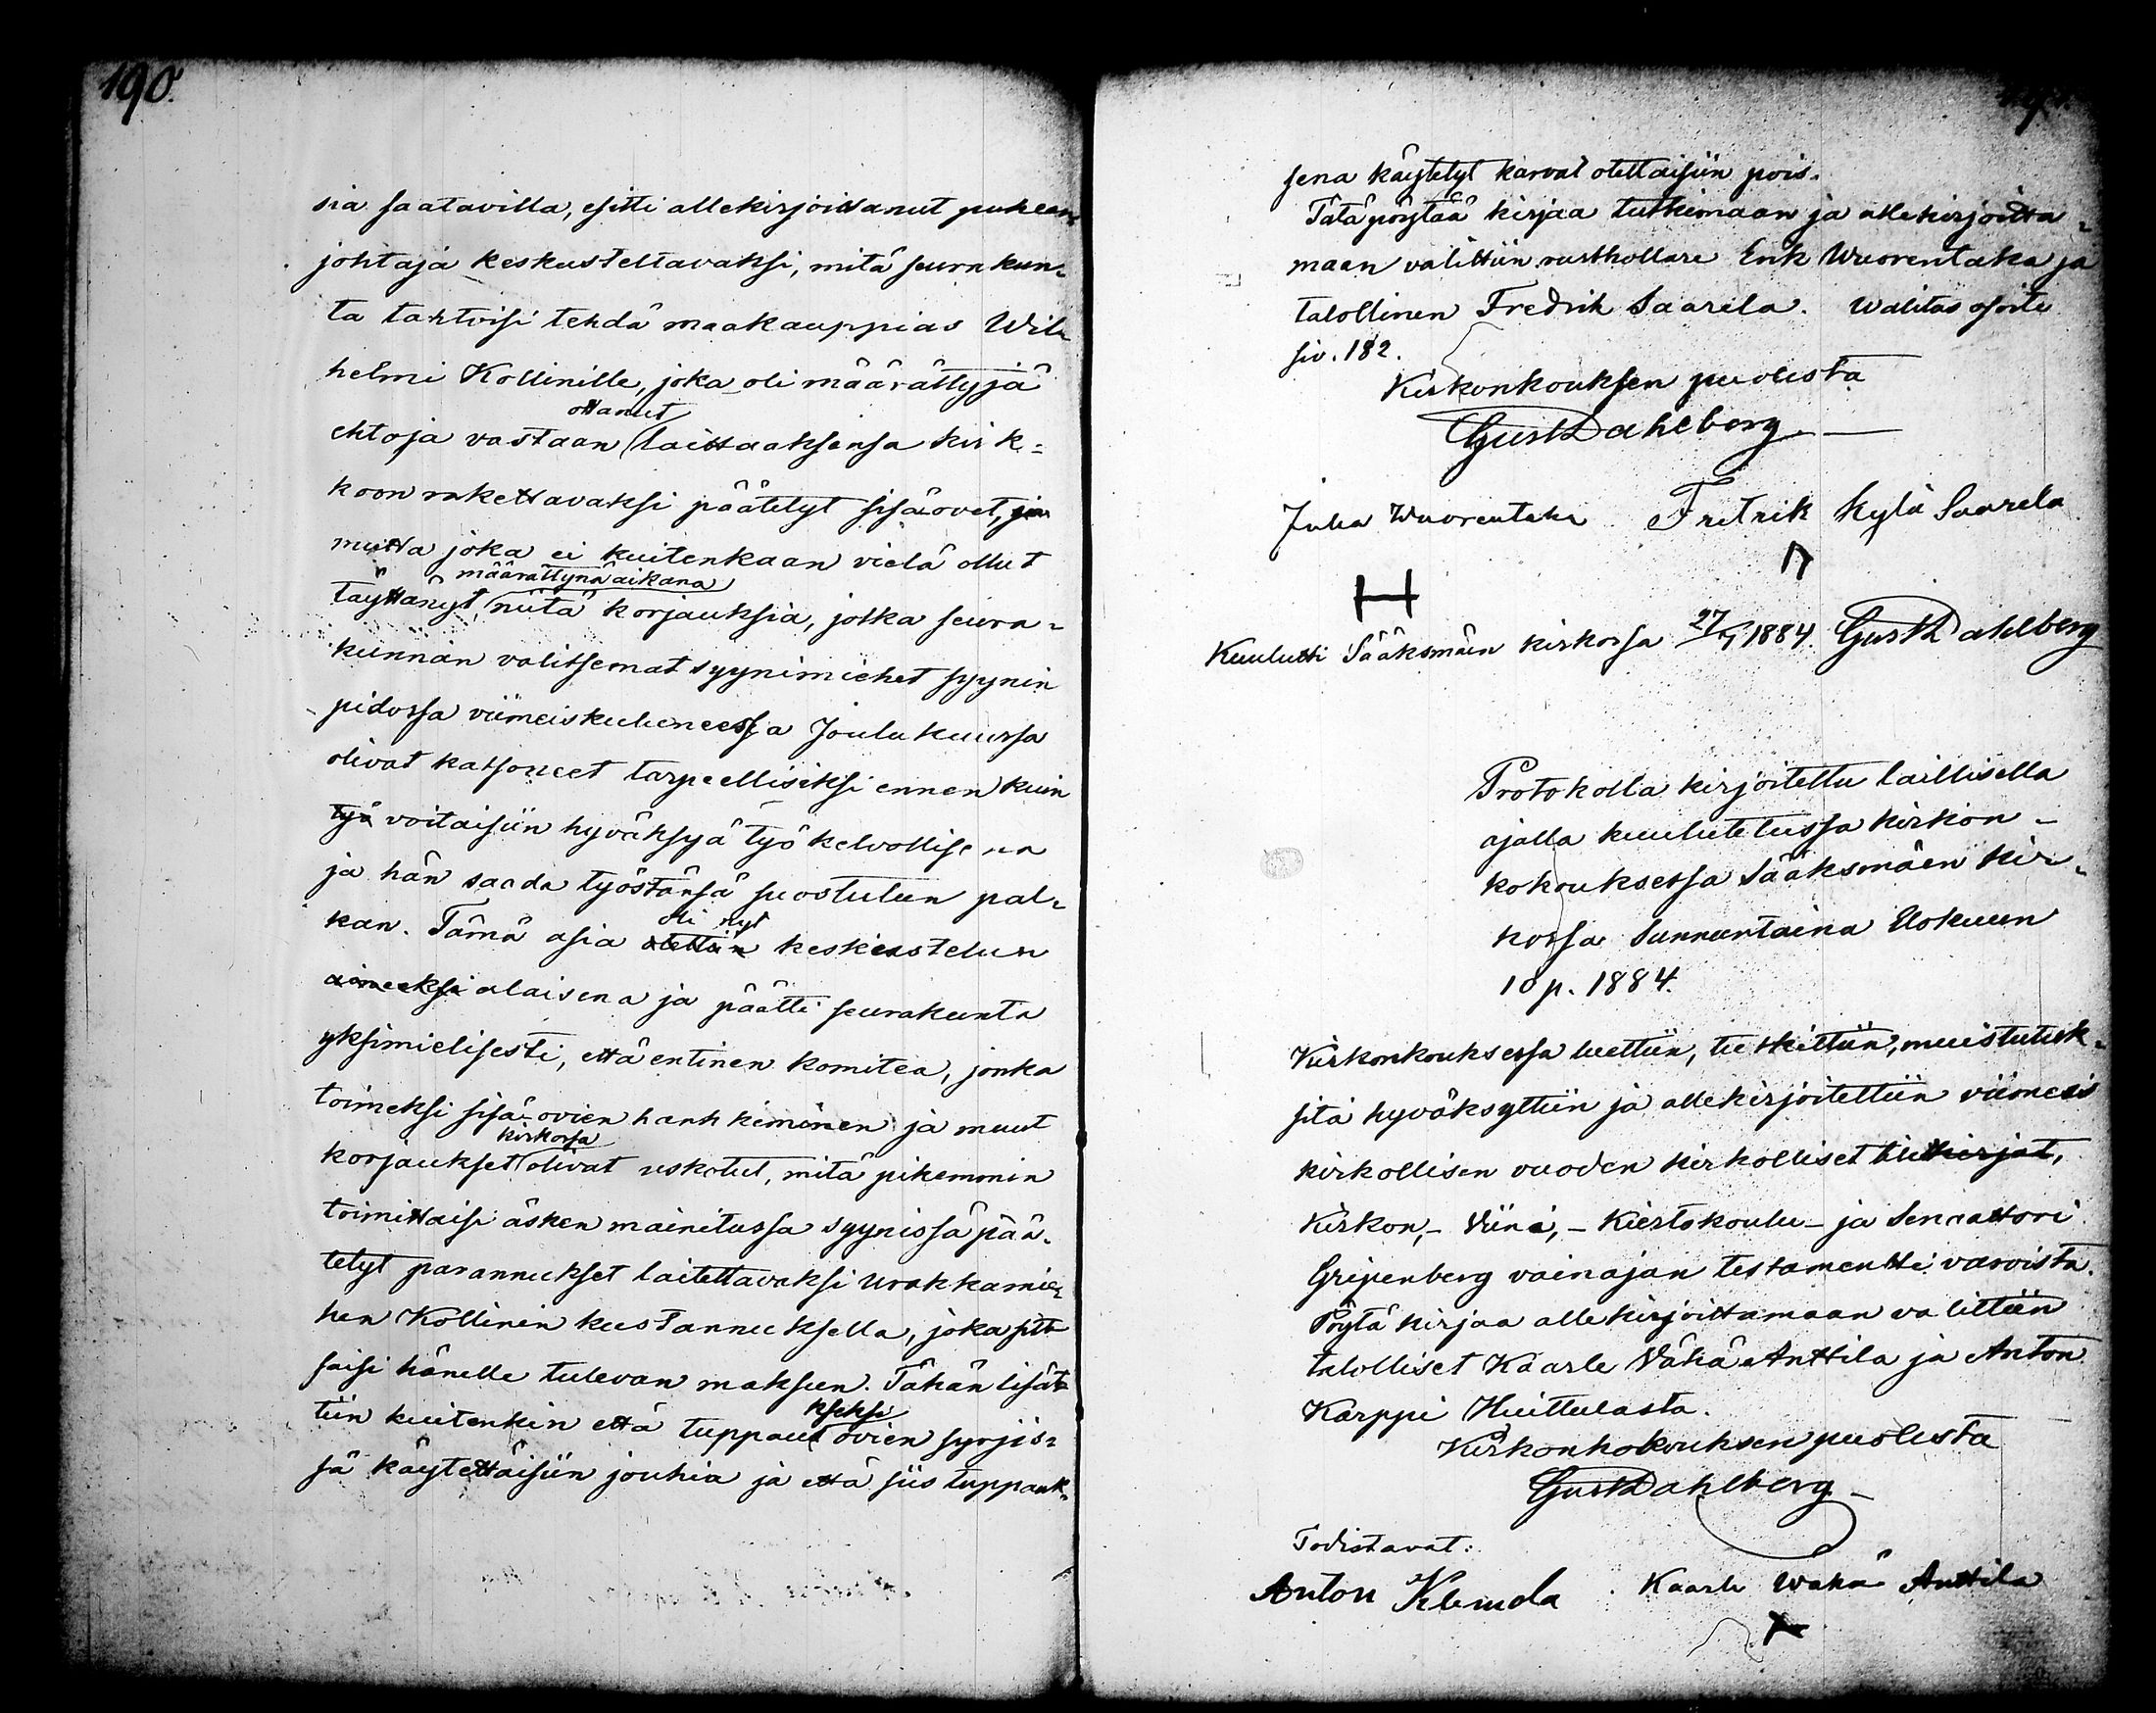 190.
sia saatavilla, esitti allekirjoittanut puheen
johtaja keskusteltavaksi, mitä seurakun-
ta tahtoisi tehdä maakauppias Wil-
helmi Kollinille, joka oli määrättyjä
ottanut
ehtoja vastaan laittaaksensa kirk-
koon rakettavaksi päätetyt sisäovet, ja
mutta joka ei kuitenkaan vielä ollut
määrättynä aikana
täyttänyt niitä korjauksia, jotka seura-
kunnan valitsemat syynimiehet syynin
pidossa viimeiskuluneessa Joulukuussa
olivat katsoneet tarpeellisiksi ennen kuin
työ voitaisiin hyväksyä työ kelvollisena
ja hän saada työstänsä suostutun pal-
oli nyt
kan. Tämä asia otettiin keskustelun
aineeksi alaisena ja päätti seurakunta
yksimielisesti, että entinen komitea, jonka
toimeksi sisä-ovien hankkiminen ja muut
kirkossa
korjaukset olivat uskotut, mitä pikemmin
toimittaisi äsken mainitussa syynissä pää-
tetyt parannukset laitettavaksi urakkamie-
hen Kollinin kustannuksella, joka
saisi hänelle tulevan maksun. Tähän lisät-
tiin kuitenkin että tuppauk
kseksi
ovien syrjis-
sä käytettäisiin jouhia ja että siis tuppauk-
sena käytetyt karvat otettaisiin pois.
Tätä pöytää kirjaa tutkimaan ja allekirjoitta-
maan valittiin rusthollare Erik Wuorentaka ja
talollinen Fredrik Saarela. Walitus osoite
siv. 182.
Kirkonkouksen puolesta
Gust Dahlberg
Juha Wuorentaka Fretrik Kylä Saarela
Kuulutti Sääksmäen kirkossa 27/7 1884. Gust Dahlberg
Protokolla kirjoitettu laillisella
ajalla kuulutetussa kirkon-
kokouksessa Sääksmäen kir-
kossa Sunnuntaina Elokuun
10 p. 1884.
Kirkonkouksessa luettiin, tutkittiin, muistutuk-
sitä hyväksyttiin ja allekirjoitettiin viimeis
kirkollisen vuoden kirkolliset tilikirjat,
Kirkon,- Viina,- Kiertokoulu- ja Senaattori
Gripenberg vainajan testamentti varoista.
Pöytä kirjaa allekirjoittamaan valittiin
talolliset Kaarle Vähä Anttila ja Anton
Karppi Huittulasta.
Kirkonkokouksen puolesta
Gust Dahlberg
Todistavat:
Anton Klemola Kaarle Wähä Anttila